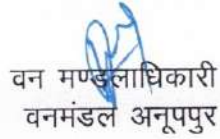 वन मण्डलाधिकारी
वनमंडल अनूपपुर